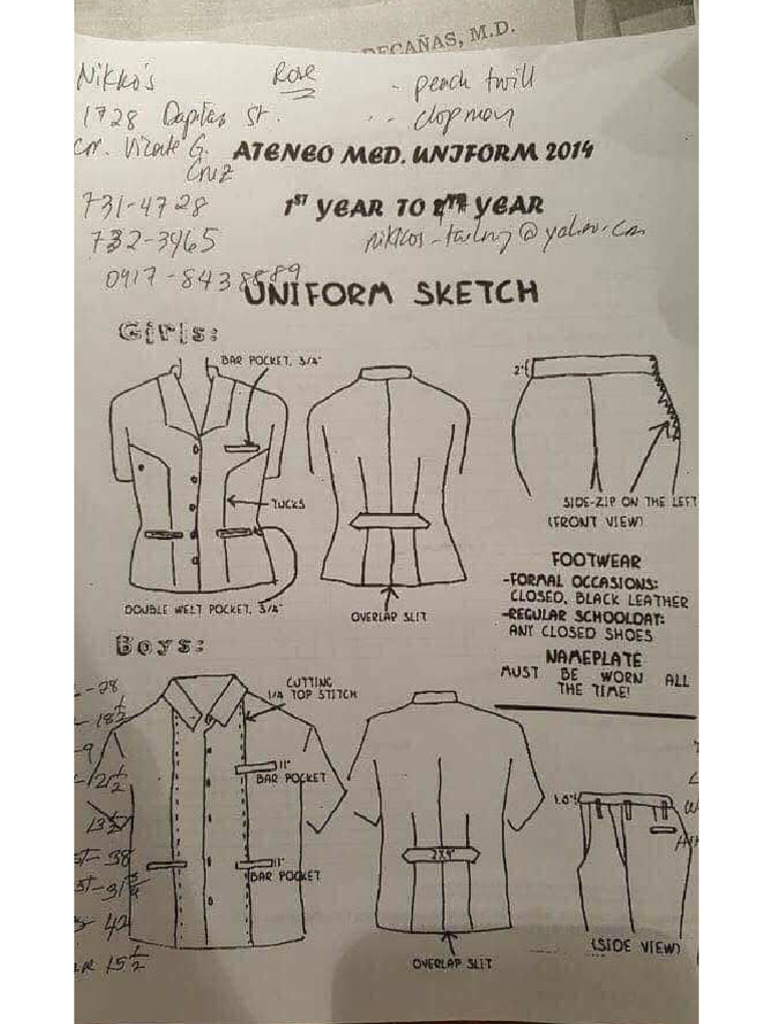 DECAÑAS, M.D.
Nikko's Rose - peach twill
1728 Dapitan St.
cor. Vicente G.
Cruz
ATENEO MED. UNIFORM 2014
1ST YEAR TO YEAR
731-4728
732-3965
@yahoo.com
0917-8438889
UNIFORM SKETCH
Girls:
BAR POCKET, 3/4"
2"
TUCKS
SIDE-ZIP ON THE LEFT
(FRONT VIEW)
DOUBLE WELT POCKET, 3/4"
OVERLAP SLIT
FOOTWEAR
-FORMAL OCCASIONS:
CLOSED, BLACK LEATHER
-REGULAR SCHOOLDAY:
ANY CLOSED SHOES
NAMEPLATE
MUST BE WORN ALL
THE TIME!
Boys:
CUTTING
1/4 TOP STITCH
11"
BAR POCKET
11"
BAR POCKET
2X9"
OVERLAP SLIT
(SIDE VIEW)
-28
-18 1/2
-9
13 1/2
- 38
42
15 1/2